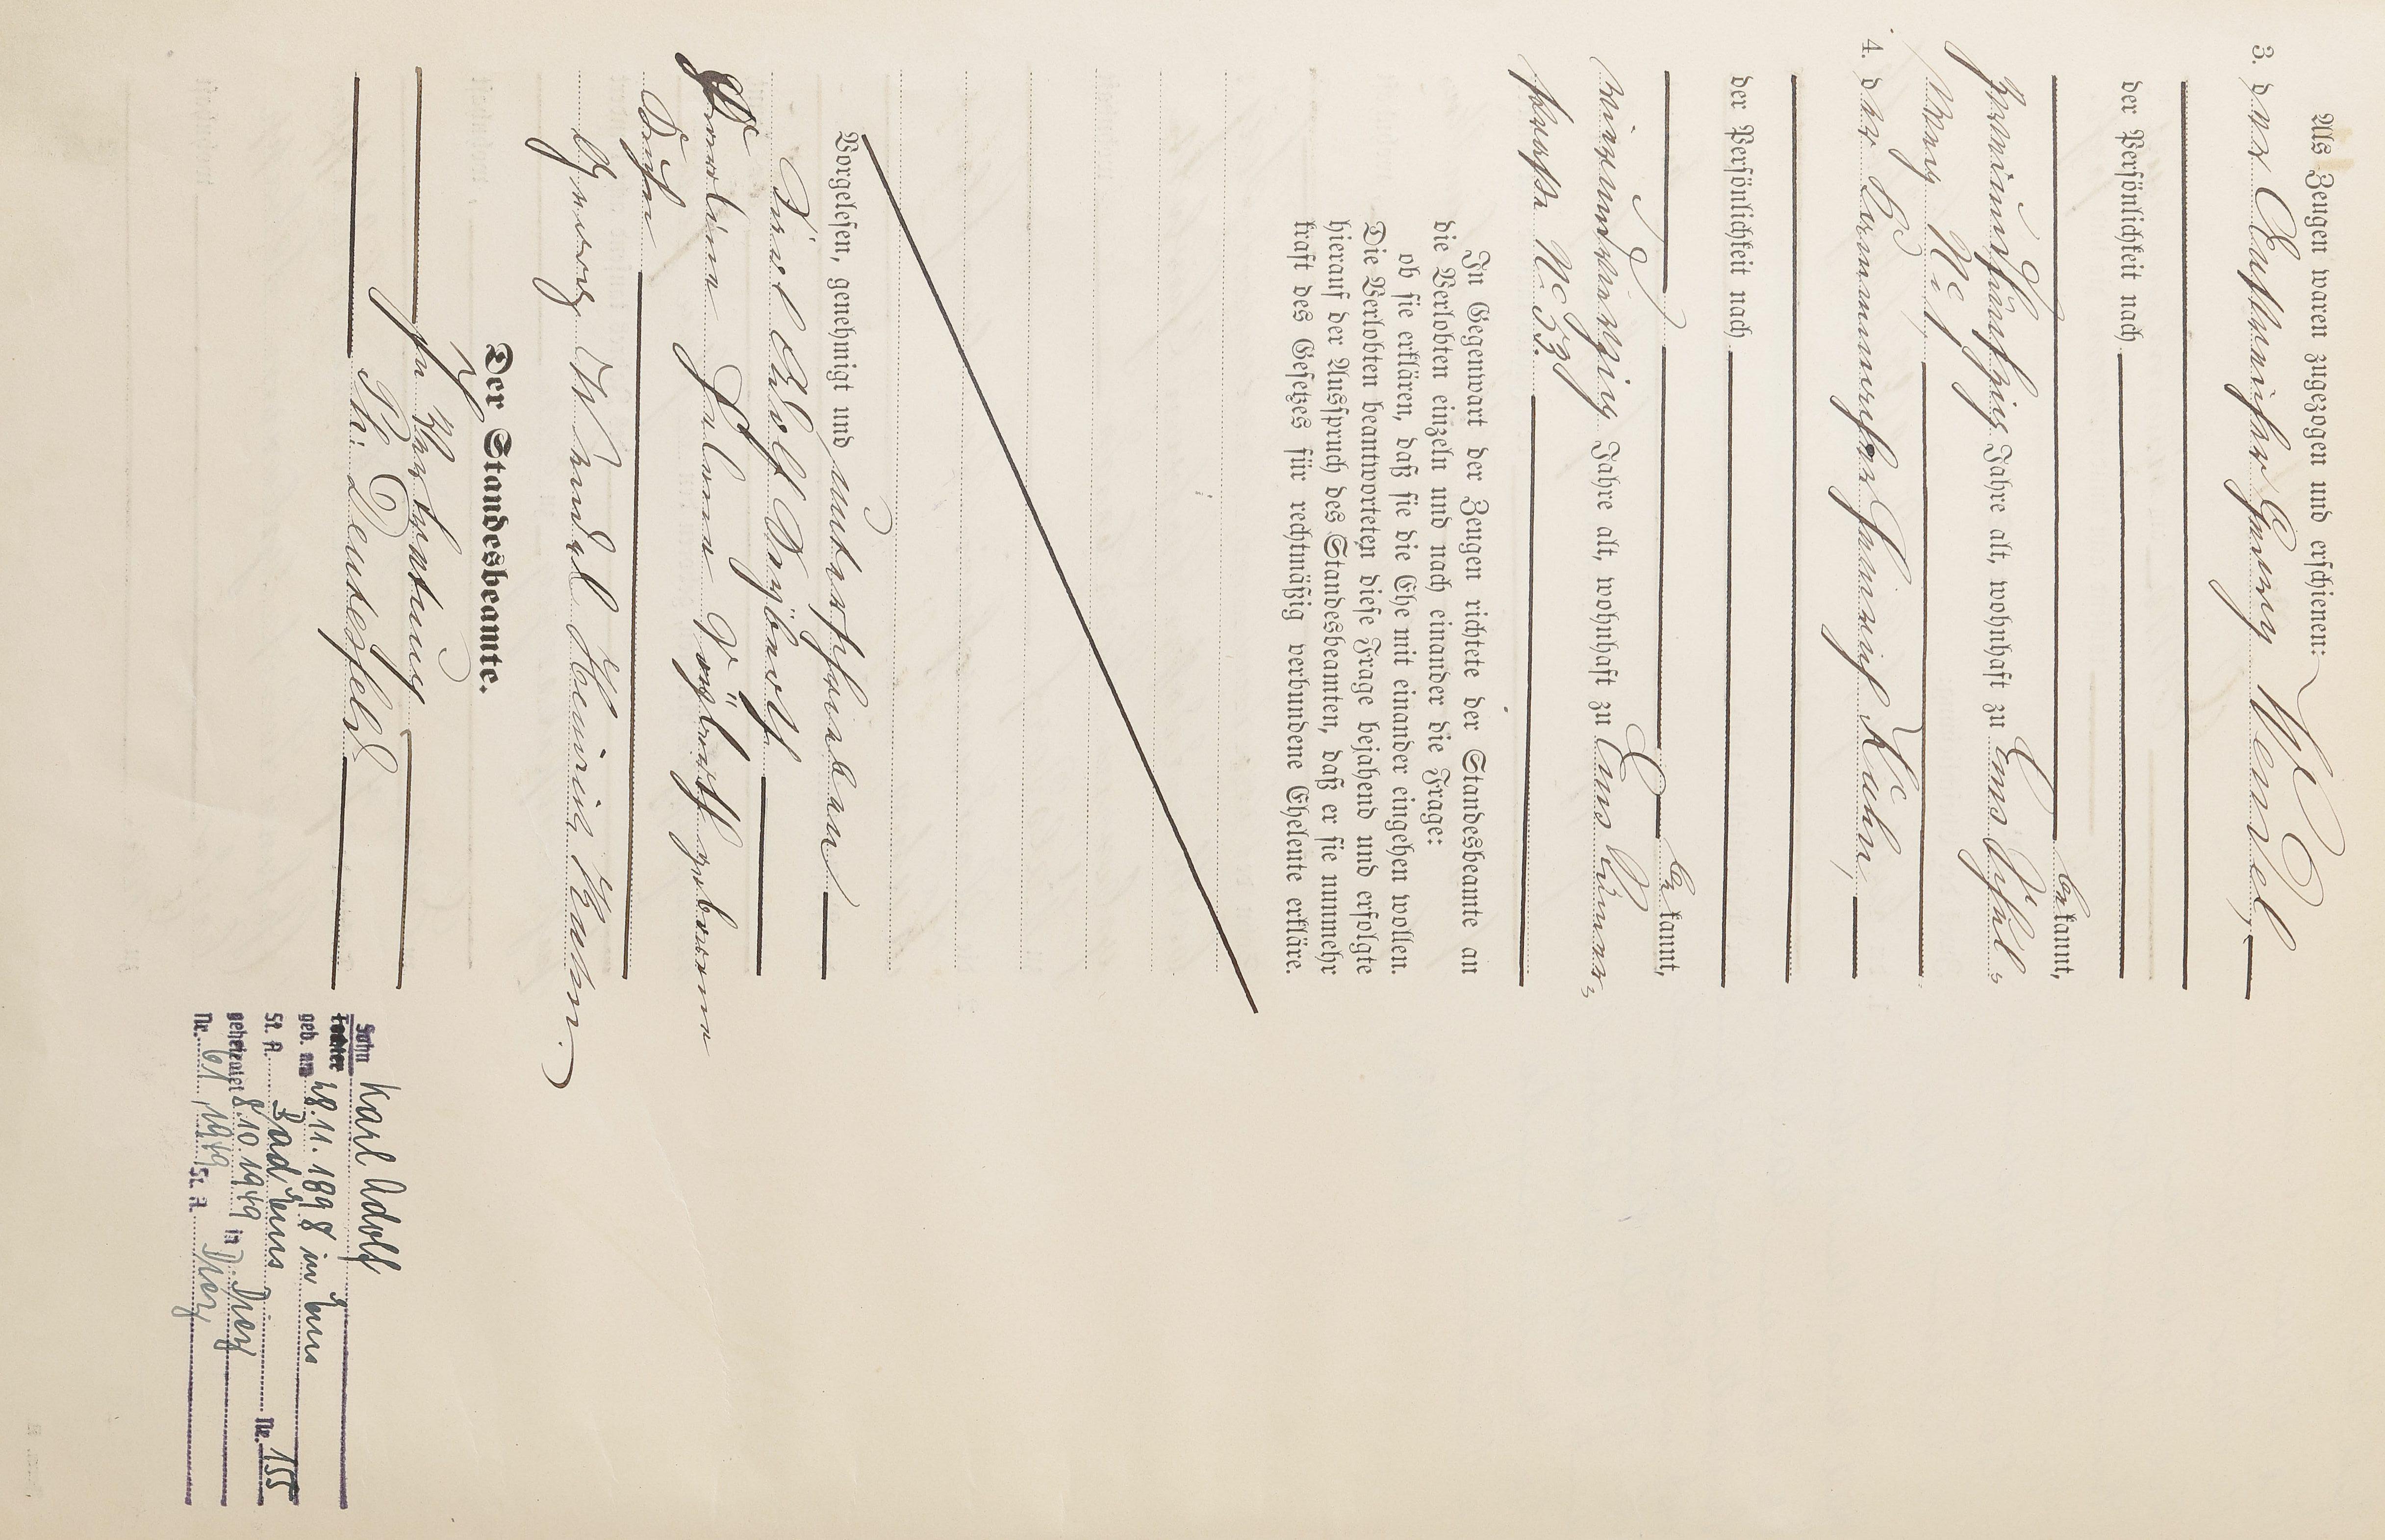 Als Zeugen waren zugezogen und erschienen:
3. der Georg Wendel,
der Persönlichkeit nach
bekannt,
Jahre alt, wohnhaft zu Ems
No 1
4. der Heinrich Kuhn,
der Persönlichkeit nach
bekannt,
vierundvierzig Jahre alt, wohnhaft zu Ems Römer-
straße No 33.
In Gegenwart der Zeugen richtete der Standesbeamte an
die Verlobten einzeln und nach einander die Frage:
ob sie erklären, daß sie die Ehe mit einander eingehen wollen.
Die Verlobten beantworteten diese Frage bejahend und erfolgte
hierauf der Ausspruch des Standesbeamten, daß er sie nunmehr
kraft des Gesetzes für rechtmäßig verbundene Eheleute erkläre.
Vorgelesen, genehmigt und unterschrieben
Karl Adolf
geborene
Georg Wendel Heinrich Kuhn.
Der Standesbeamte.
In Vertretung
Deutesfeld
Sohn Karl Adolf
Tochter
geb. am 28.11.1898 in Ems
St. A. Bad Ems Nr. 155
geheiratet 8.10.1949 in Diez
Nr. 61/1949 St. A. Diez